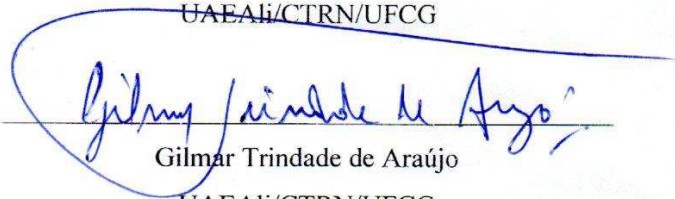 UAEAli/CTRN/UFCG
Gilmar Trindade de Araújo
Gilmar Trindade de Araújo
UAEAli/CTRN/UFCG